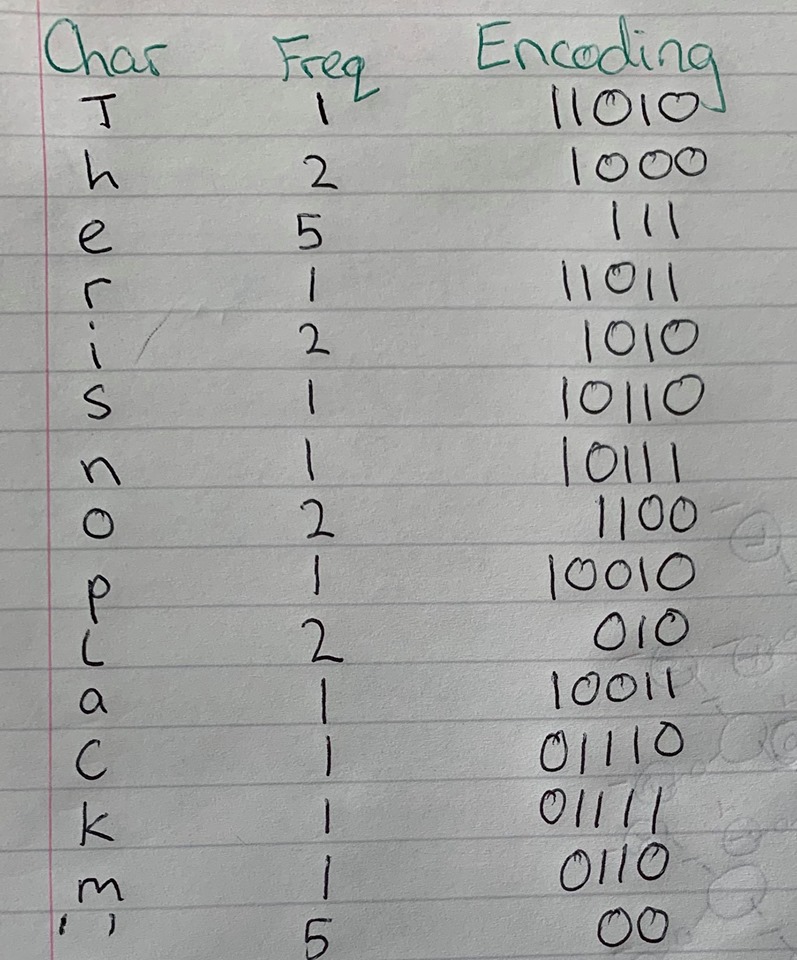 Char Freq Encoding
T 1 11010
h 2 1000
e 5 111
r 1 11011
i 2 1010
s 1 10110
n 1 10111
o 2 1100
p 1 10010
l 2 010
a 1 10011
c 1 01110
k 1 01111
m 1 0110
' ' 5 00